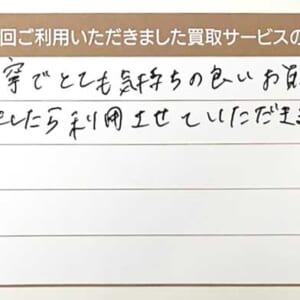 回ご利用いただきました買取サービスの
寧でとても気持ちの良いお買
したら利用させていただきま